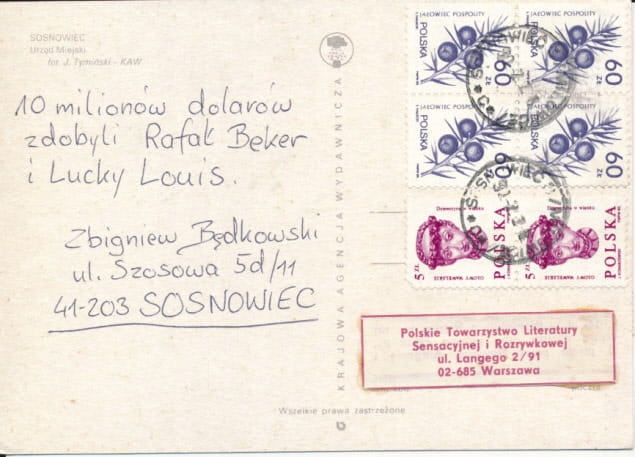 SOSNOWIEC
Urząd Miejski
fot. J. Tymiński - KAW
10 milionów dolarów
zdobyli Rafał Beker
i Lucky Louis.
Zbigniew Będkowski
ul. Szosowa 5d/11
41-203 SOSNOWIEC
KRAJOWA AGENCJA WYDAWNICZA
JAŁOWIEC POSPOLITY
POLSKA
60 ZŁ
JAŁOWIEC POSPOLITY
POLSKA
60 ZŁ
JAŁOWIEC POSPOLITY
POLSKA
60 ZŁ
JAŁOWIEC POSPOLITY
POLSKA
60 ZŁ
SOSNOWIEC
SOSNOWIEC
5 ZŁ
GŁOWY WAWELSKIE
POLSKA
5 ZŁ
GŁOWY WAWELSKIE
POLSKA
Polskie Towarzystwo Literatury
Sensacyjnej i Rozrywkowej
ul. Langego 2/91
02-685 Warszawa
Wszelkie prawa zastrzeżone